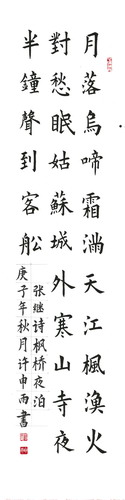 月落烏啼霜滿天江楓漁火
對愁眠姑蘇城外寒山寺夜
半鐘聲到客船
张继诗枫桥夜泊
庚子年秋月许申雨書